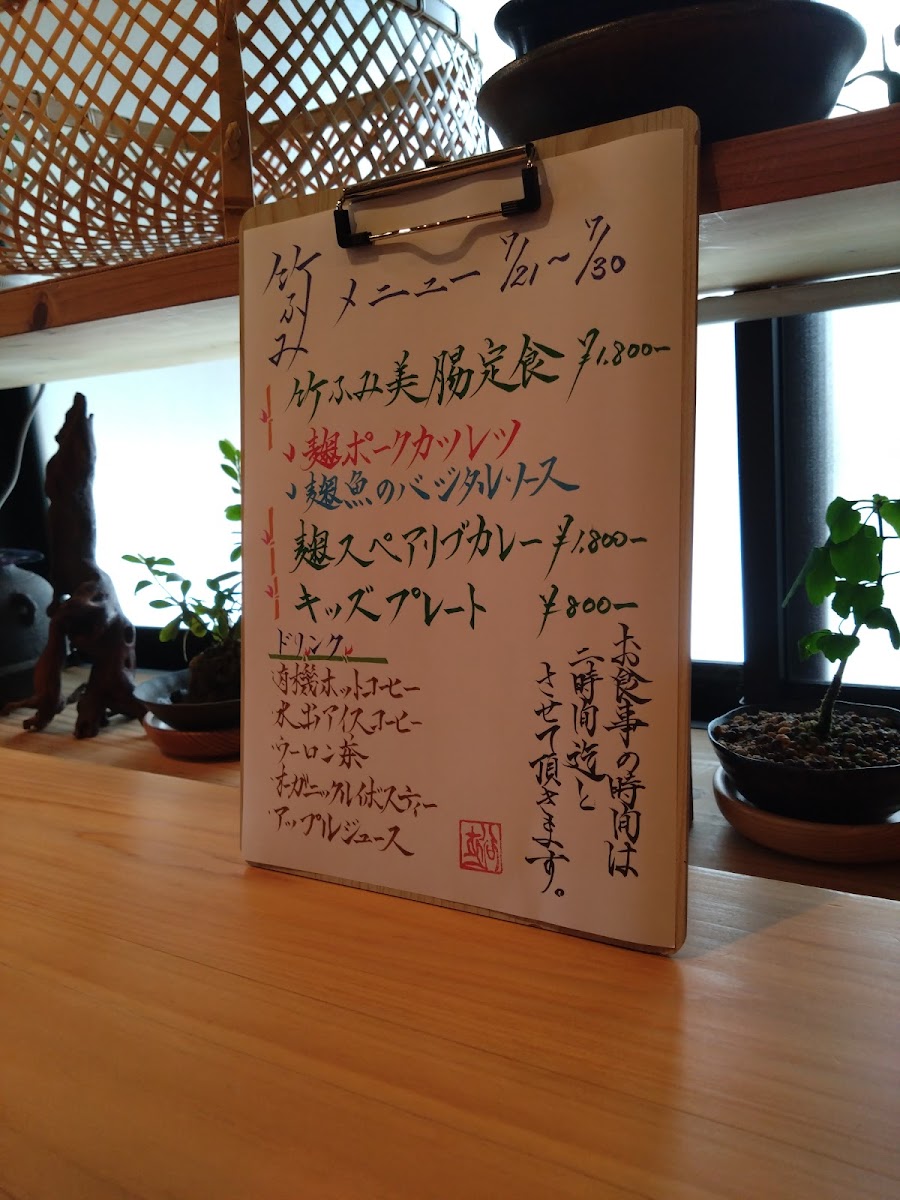 竹ふみ
メニュー 7/21〜7/30
竹ふみ美腸定食 ¥1,800-
麹ポークカツレツ
麹魚のバジタルソース
麹スペアリブカレー ¥1,800-
キッズプレート ¥800-
ドリンク
有機ホットコーヒー
水出アイスコーヒー
ウーロン茶
オーガニックルイボスティー
アップルジュース
お食事の時間は
二時間迄と
させて頂きます。